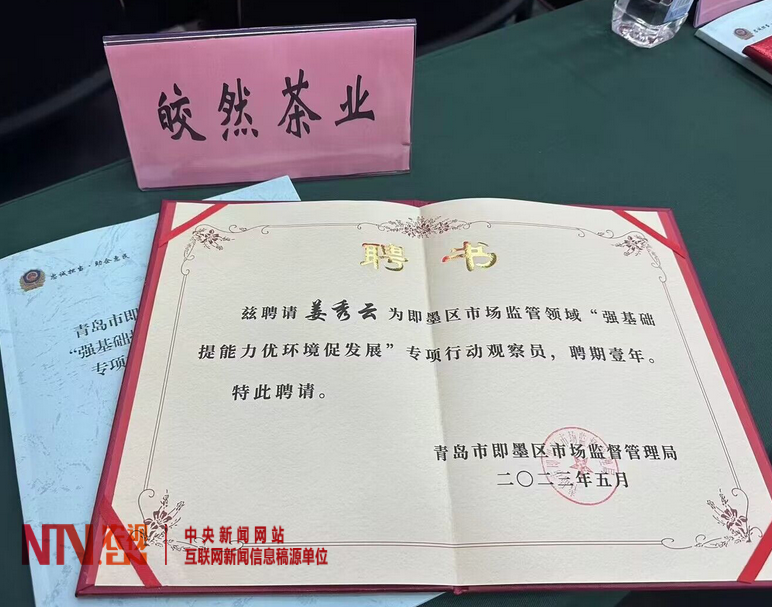 皎然茶业
忠诚担当·勤奋惠民
青岛市市即
“强基础
专项
聘书
兹聘请 姜秀云 为即墨区市场监管领域“强基础
提能力优环境促发展”专项行动观察员，聘期壹年。
特此聘请。
青岛市即墨区市场监督管理局
二〇二三年五月
NTV
中央新闻网站
互联网新闻信息稿源单位